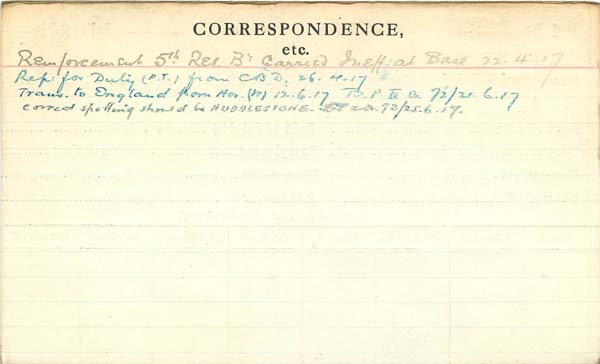 CORRESPONDENCE,
etc.
Reinforcement 5th Res. Bn Carried Ineff: at Base 22.4.17
Rep: for Duty (P.T.) from CBD. 26.4.17
Trans. to England from Hos. 12.6.17 Pt. II O. 72/21.6.17
correct spelling should be HUDDLESTONE. 72/25.6.17.